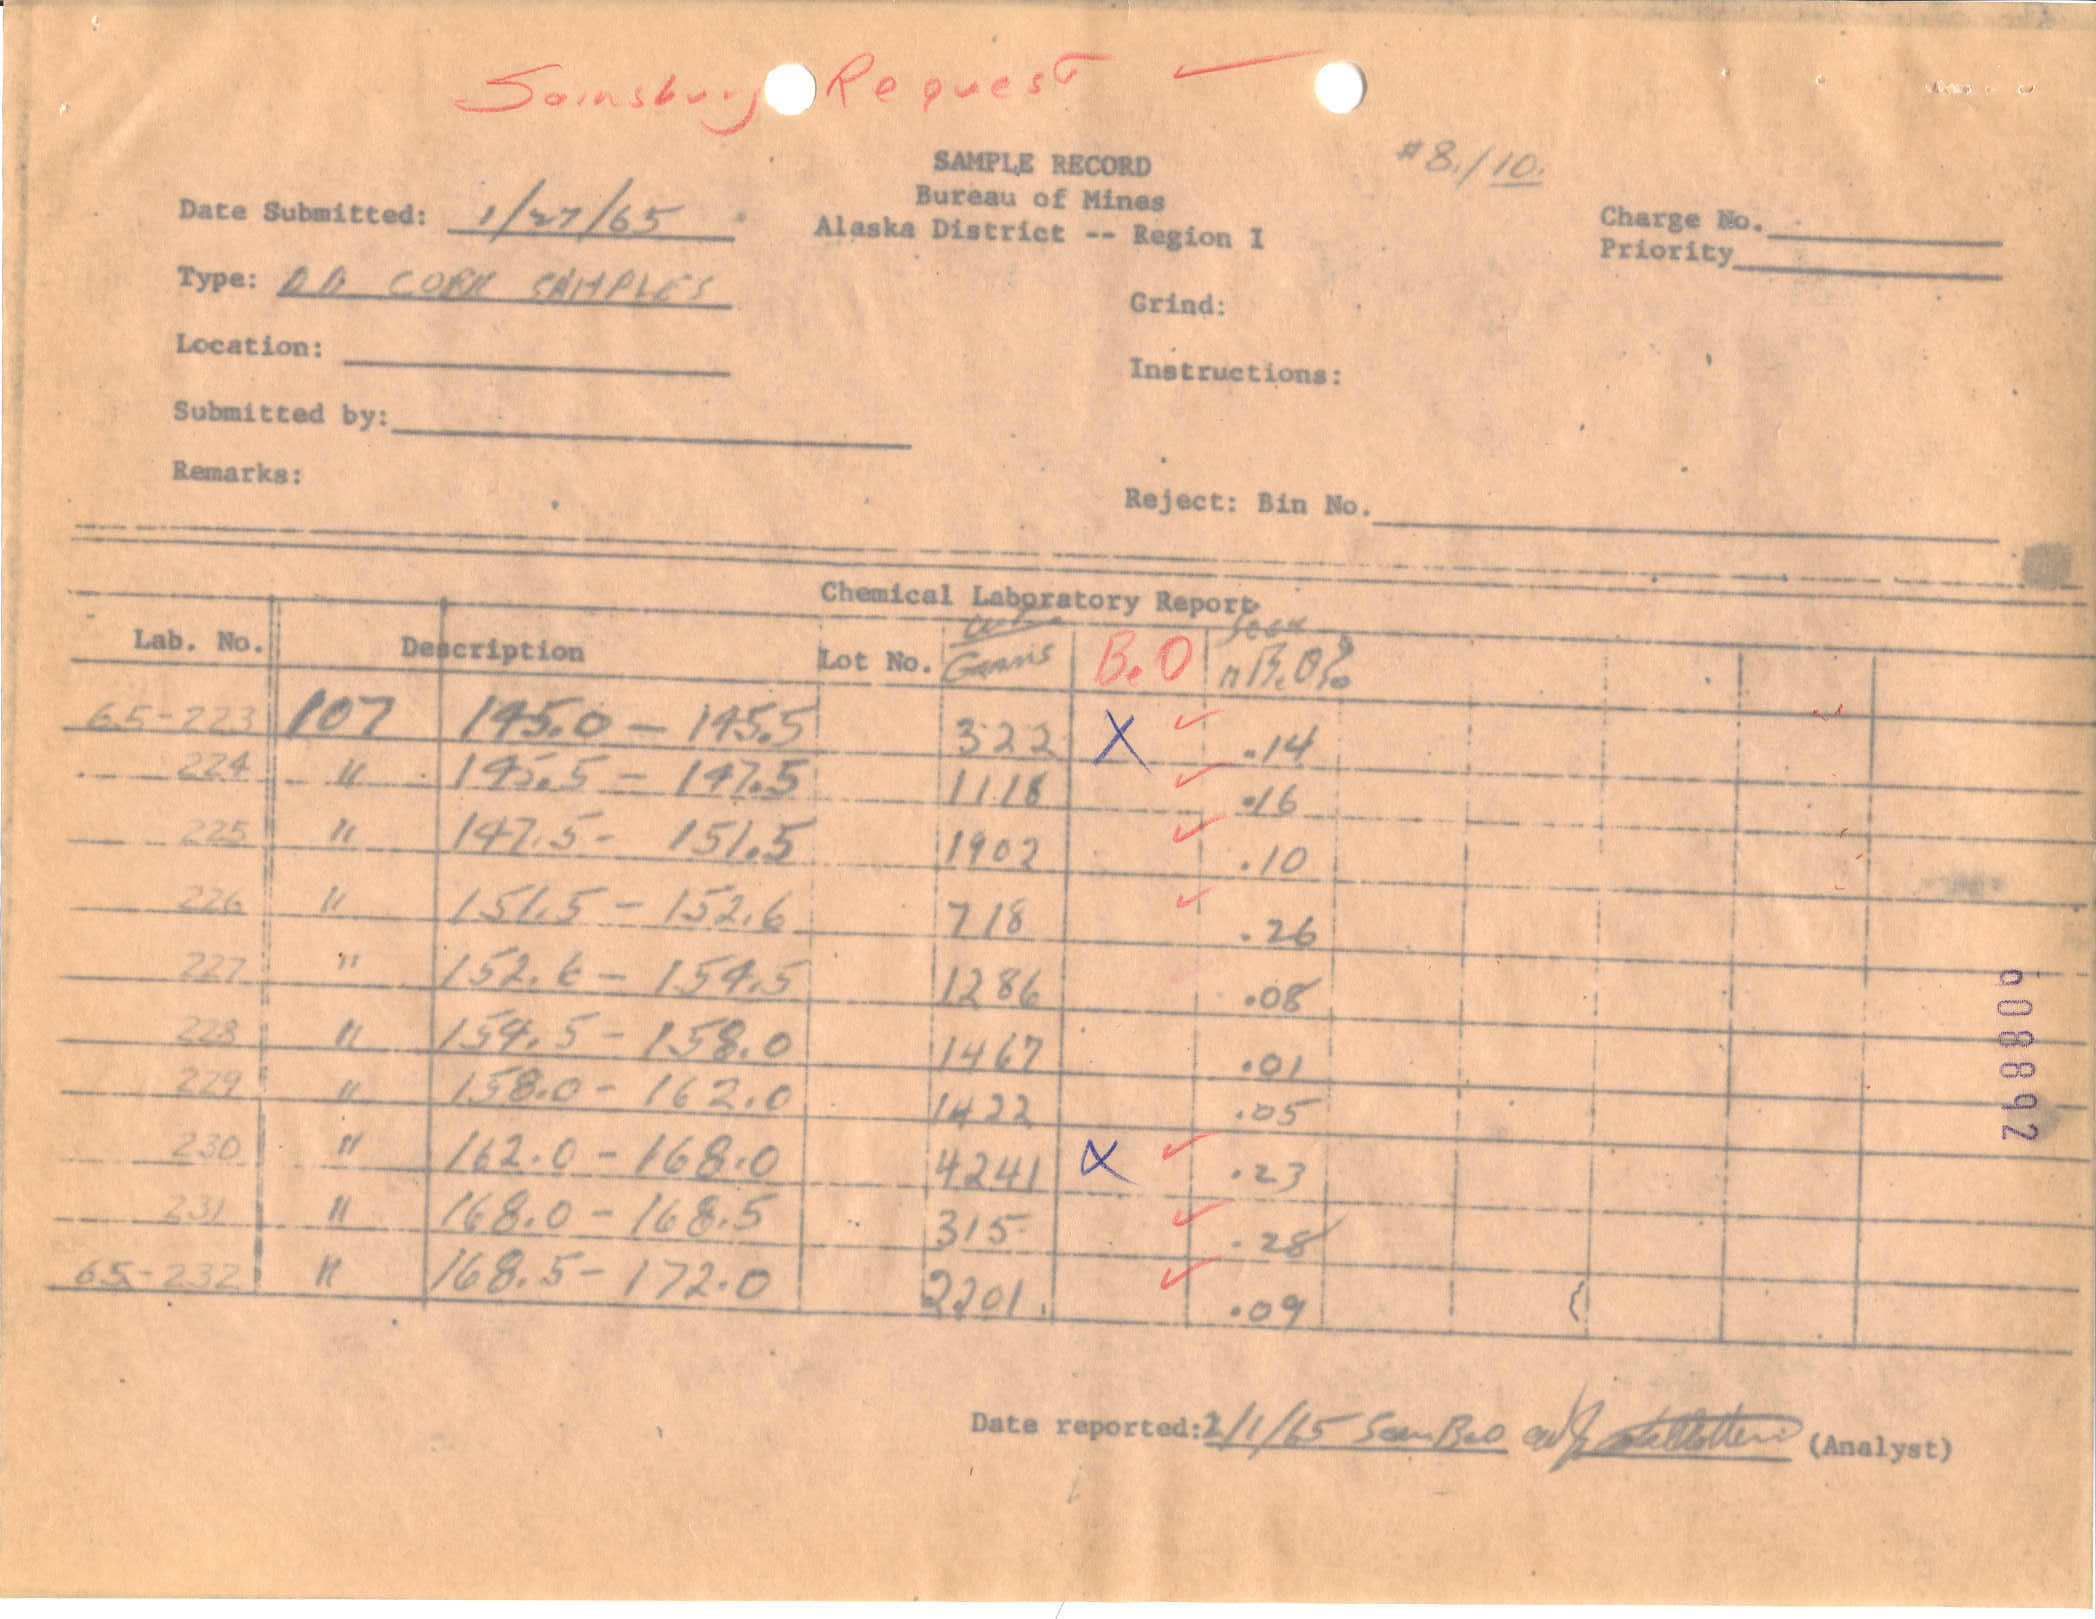 Sainsbury Request ✓
#8./10.
SAMPLE RECORD
Bureau of Mines
Alaska District -- Region I
Date Submitted: 1/27/65
Charge No.
Priority
Type: DD CORE SAMPLES
Grind:
Location:
Instructions:
Submitted by:
Remarks:
Reject: Bin No.
Chemical Laboratory Report
Lab. No. Description Lot No. Grams BeO BeO%
65-223 107 145.0 - 145.5 322 X ✓ .14
224 " 145.5 - 147.5 1118 ✓ .16
225 " 147.5 - 151.5 1902 ✓ .10
226 " 151.5 - 152.6 718 ✓ .26
227 " 152.6 - 154.5 1286 .08
228 " 154.5 - 158.0 1467 .01
229 " 158.0 - 162.0 1422 .05
230 " 162.0 - 168.0 4241 X ✓ .23
231 " 168.0 - 168.5 315 ✓ .28
65-232 " 168.5 - 172.0 2201 ✓ .09
Date reported: 2/1/65 BeO (Analyst)
608892